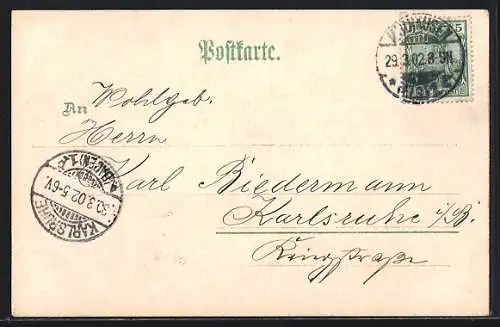 Postkarte.
5
29.3.02.8-9N
An
Wohlgeb.
Herrn
Karl Biedermann
Karlsruhe i/B.
Kriegstraße
KARLSRUHE
30.3.02.5-6V.
(BADEN) 1.